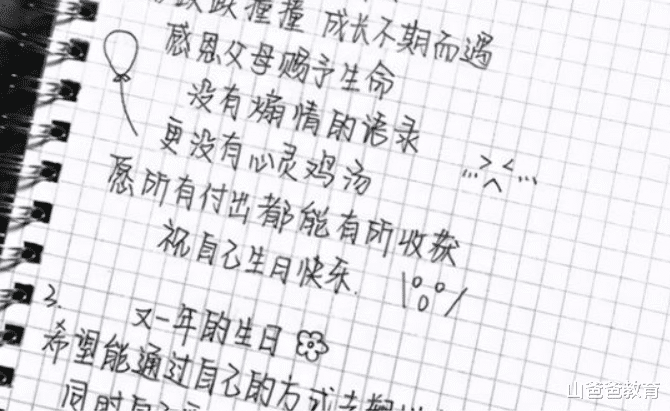 跌跌撞撞 成长不期而遇
感恩父母赐予生命
没有煽情的语录
更没有心灵鸡汤
愿所有付出都能有所收获
祝自己生日快乐.
3.
又一年的生日
希望能通过自己的方式去
同时
山爸爸教育